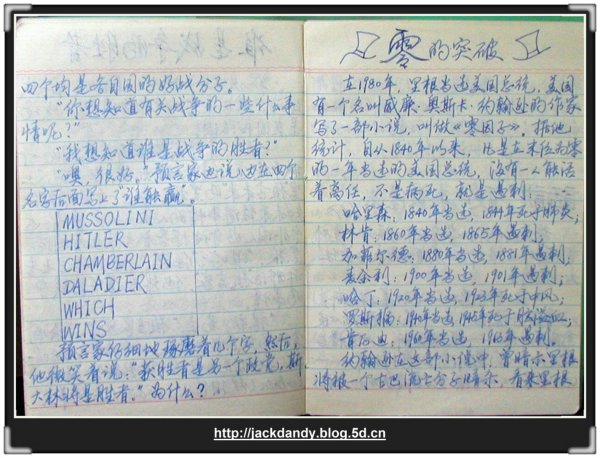 四个均是各自国的好战分子。
"你想知道有关战争的一些什么事
情呢？"
"我想知道谁是战争的胜者？"
"噢，很好。"预言家边说，边在四个
名字后面写上了"谁能赢"。
MUSSOLINI
HITLER
CHAMBERLAIN
DALADIER
WHICH
WINS
预言家仔细地琢磨着几个字，然后，
他微笑着说："获胜者是另一个政党，斯
大林将是胜者。"为什么？
零的突破
在1980年，里根当选美国总统，美国
有一个名叫威廉·奥斯卡·约翰逊的作家
写了一部小说，叫做《零因子》。据他
统计，自从1840年以来，凡是在末位为零
的一年当选的美国总统，没有一人能活
着离任，不是病死，就是遇刺：
哈里森：1840年当选，年死于肺炎；
林肯：1860年当选，1865年遇刺；
加菲尔德：1880年当选，1881年遇刺；
麦金利：1900年当选，1901年遇刺；
哈丁：1920年当选，1923年死于中风；
罗斯福：1940年当选1945年死于脑溢血；
肯尼迪：1960年当选，1963年遇刺。
约翰逊在这部小说中，暗示里根
将被一个古巴流亡分子暗杀，看来里根
http://jackdandy.blog.5d.cn